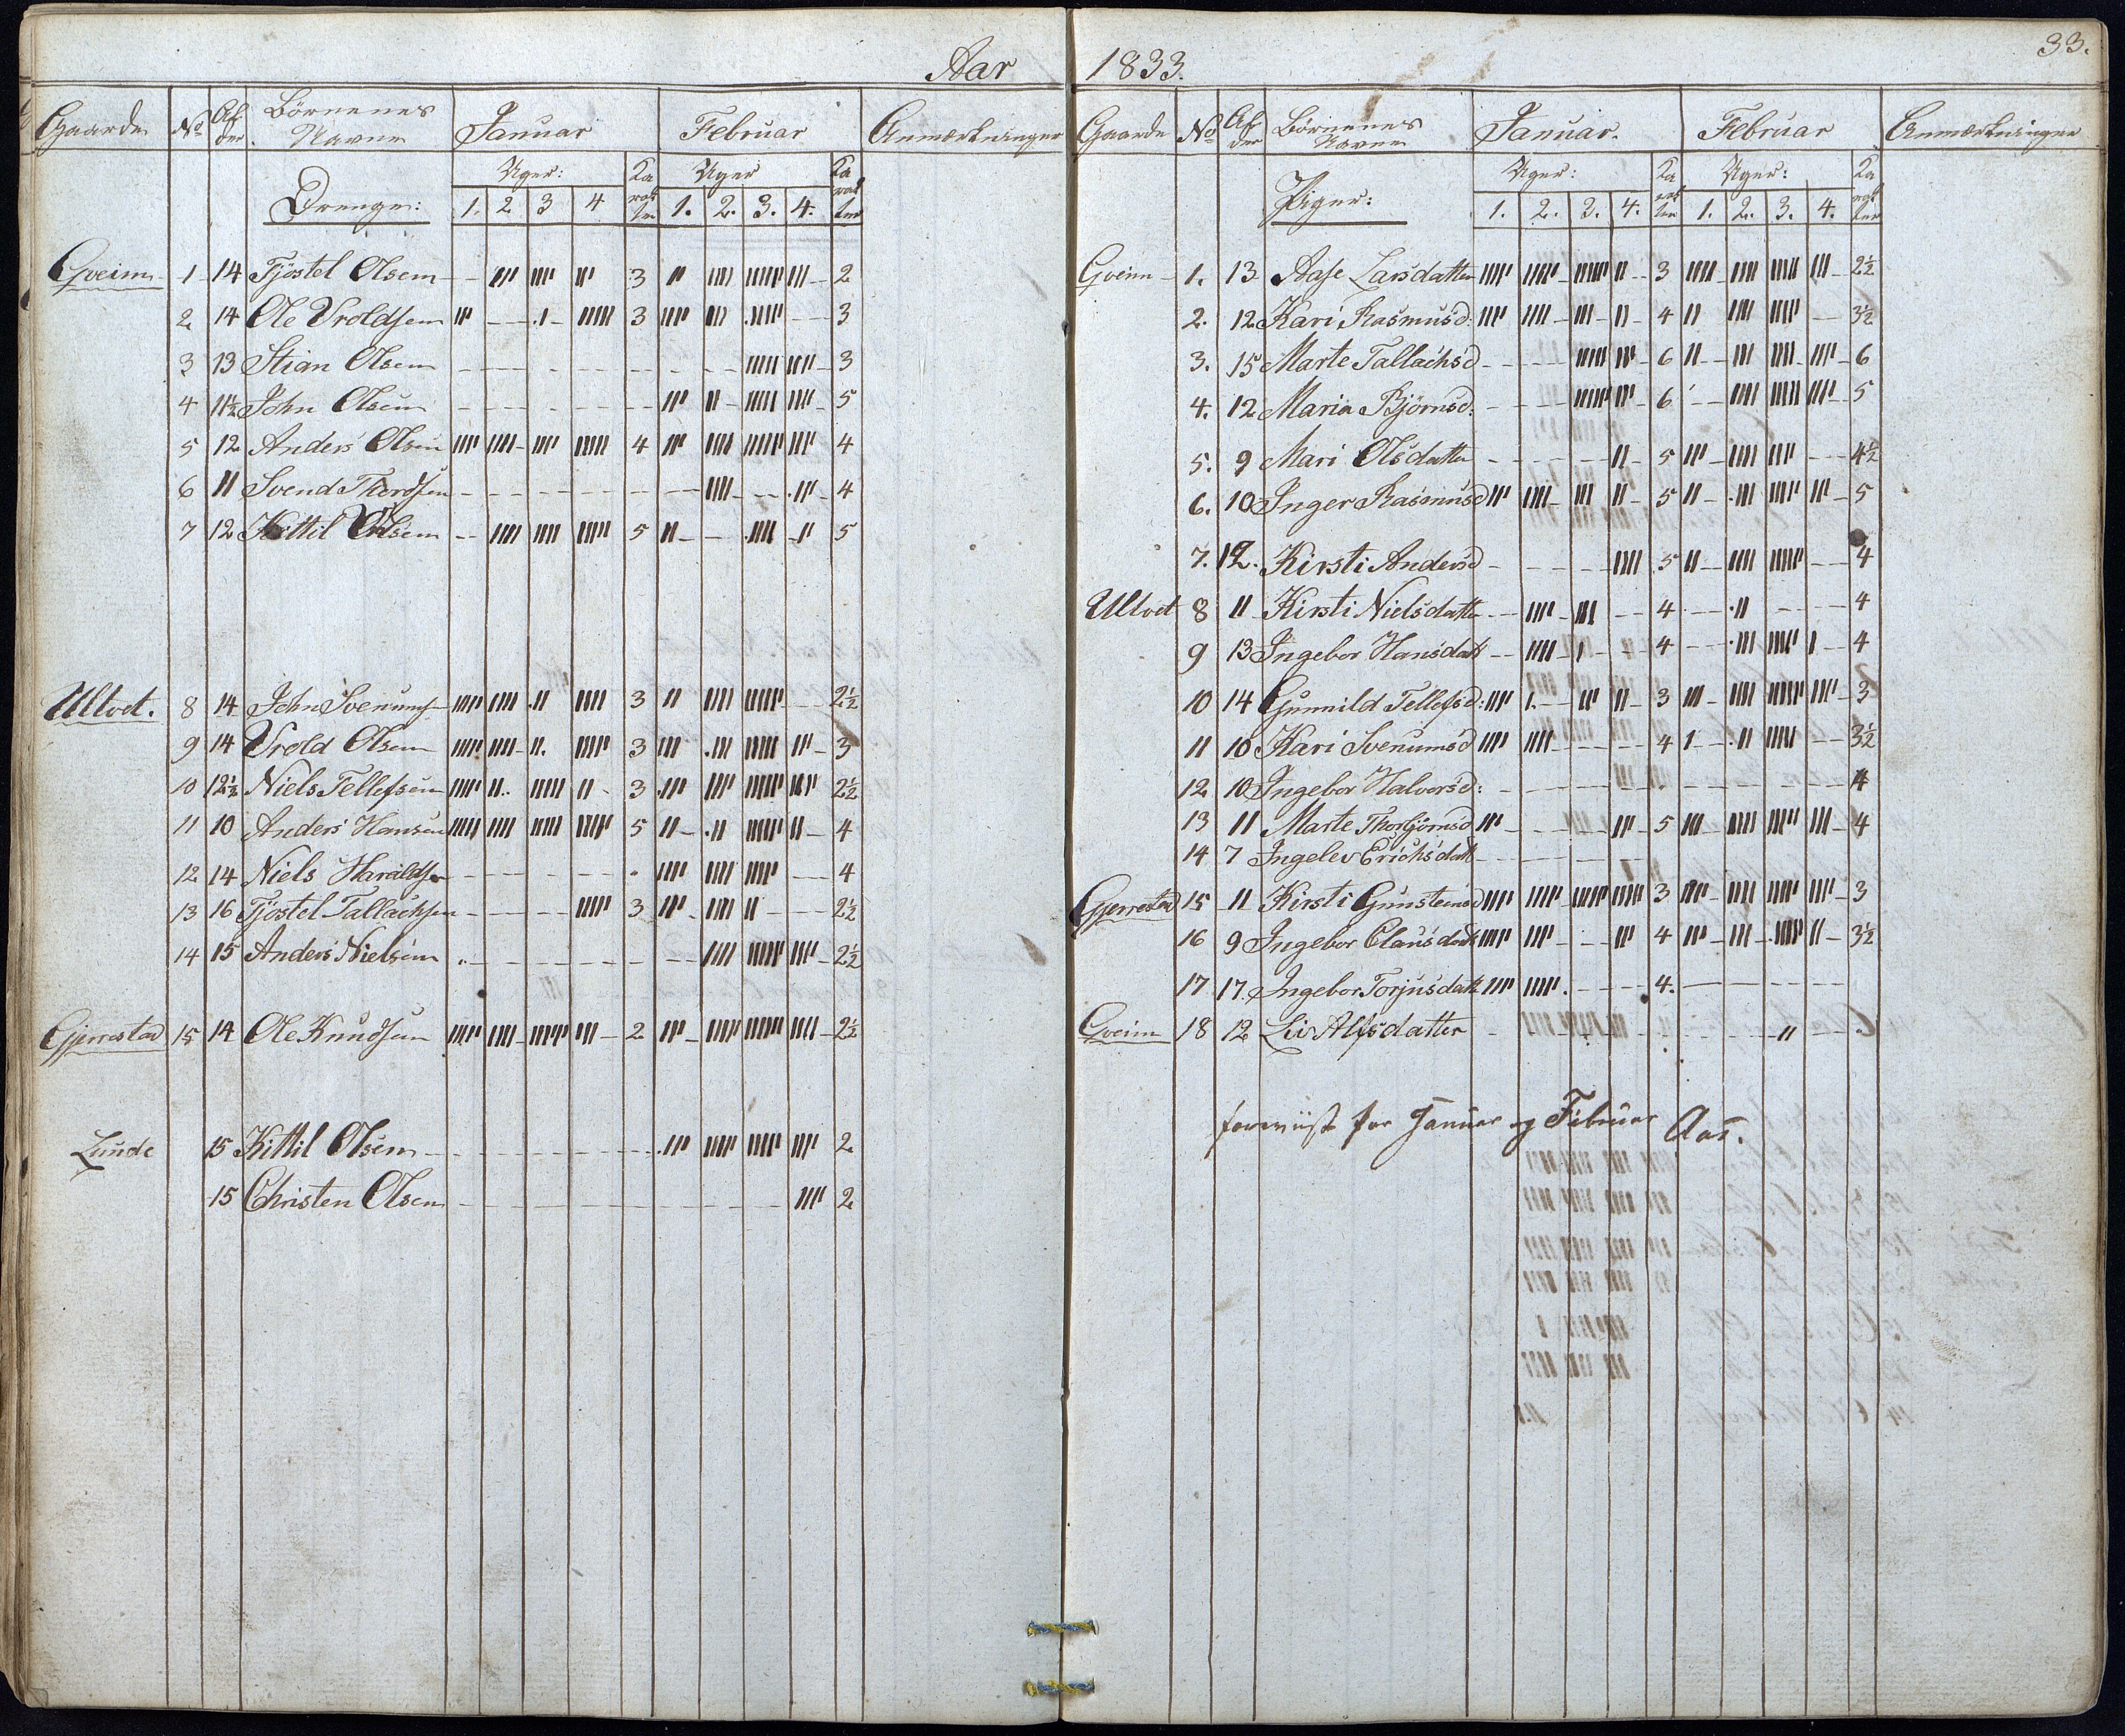 33.
Aar 1833.
Gaarde No Al der. Börnenes Navne Januar Februar Anmærkninger
Drenge: Uger: 1. 2 3 4 Ka rak ter Uger 1. 2. 3. 4. Ka rak ter
Gveim 1 14 Tjöstel Olsen 3 2
2 14 Ole Vroldsen 3 3
3 13 Stian Olsen 3
4 11½ John Olsen 5
5 12 Anders Olsen 4 4
6 11 Svend Thordsen 4
7 12 Kittil Olsen 5 5
Ultvet. 8 14 John Svenungs 3 2½
9 14 Vrold Olsen 3 3
10 12½ Niels Tellefsen 3 2½
11 10 Anders Hansen 5 4
12 14 Niels Haraldsen 4
13 16 Tjöstel Tallachsen 3 2½
14 15 Anders Nielsen 2½
Gjerrestad 15 14 Ole Knudsen 2 2½
Lunde 15 Kittil Olsen 2
15 Christen Olsen 2
Gaarde No Al der Börnenes Navne Januar. Februar Anmærkninger
Piger: Uger: 1. 2. 3. 4. Ka rak ter Uger: 1. 2. 3. 4. Ka rak ter
Gveim 1. 13 Aase Larsdatter 3 2½
2. 12 Kari Rasmusd: 4 3½
3. 15 Marte Tallachsd 6 6
4. 12 Maria Bjömsd: 6 5
5. 9 Mari Olsdatter 5 4½
6. 10 Inger Rasmusd 5 5
7. 12. Kirsti Andersd 5 4
Ultvet 8 11 Kirsti Nielsdatter 4 4
9 13 Ingebor Hansdatt 4 4
10 14 Gunnild Tellefsd: 3 3
11 10 Kari Svenumsd 4 3½
12 10 Ingebor Halvorsd: 4
13 11 Marte Thorbjörnsd 5 4
14 7 Ingelev Erichsdatt
Gjerrestad 15 11 Kirsti Gunsteinsd 3 3
16 9 Ingebor Clausdatt 4 3½
17 17. Ingebor Torjusdatt 4.
Gveim 18 12 Liv Alfsdatter
foreviist for Januar og Februar Aas.